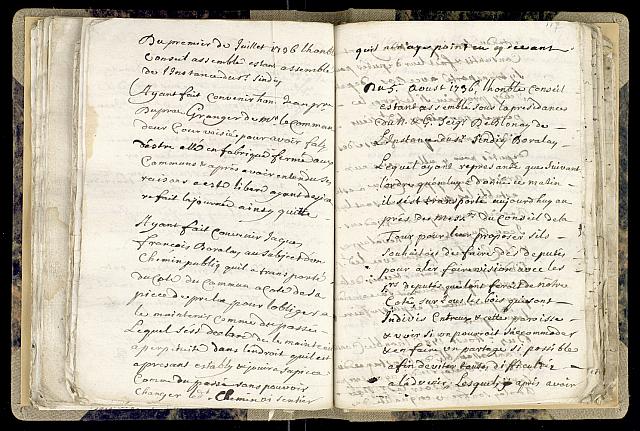 Du premier de Juillet 1736 lhonble
Conseil assemble estant assemble
de l'Instance du Sr Sindiq
Ayant fait Convenir hon. Jean pre
Granger du
deux Courvoisiés pour avoir fait
Communs & apres avoir entendu ses
raisons a esté libere ayant desja
refait la journée ainsy quitte
Ayant fait Convenir Jaques
françois Boralay au Subject dun
Chemin publiq quil a transporté
du Coté du Commun a Coté de sa
piece de pré la, pour lobliger a
le maintenir Comme du passé
Lequel sest declaré de le maintenir
a perpetuité dans lendroit quil est
apresant establi & jouxta sa piece
Comme du passé sans pouvoir
Changer led. Chemin ou sentier
117
quil nen aye point eu cy devant
Du 5. Aoust 1736, lhonble Conseil
estant assemblé sous la présidance
de Blonay de
l'Instance du Sr Sindiq Boralay
Lequel ayant representé que suivant
l'ordre quon luy a donné ce matin
il s'est transporté aujourdhuy au
prés des Messrs du Conseil de la
Tour pour leur proposer sils
souhaitoient de faire des deputés
pour aler faire vision avec les
Srs deputés quon feroit de nostre
Coté, sur tous les bois qui sont
Indivis Entreux & cette parroisse
& voir si on pourroit saccommoder
& en faire un partage si possible
afin deviter toutes difficultés
a ladvenir, Lesquels apres avoir